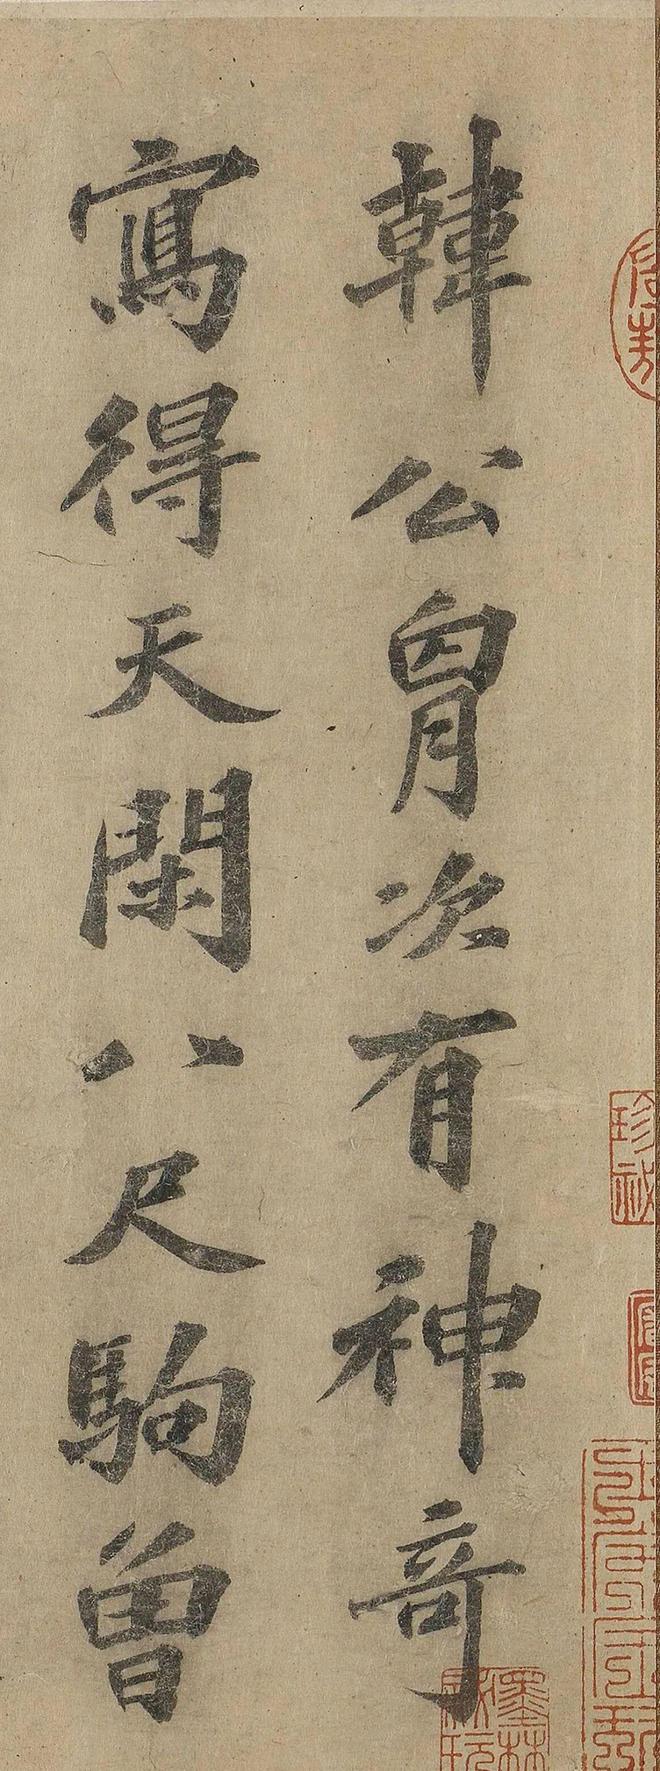 韓公胷次有神奇
寫得天閑八尺駒曽